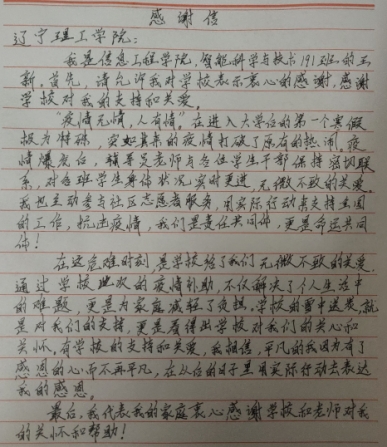 感谢信
辽宁理工学院:
我是信息工程学院,智能科学与技术191班的王
新,首先,请允许我对学校表示衷心的感谢,感谢
学校对我的支持和关爱。
"疫情无情,人有情"。在进入大学后的第一个寒假
极为特殊,突如其来的疫情打破了原有的热闹,疫
情爆发后,辅导员老师与各位学生干部保持密切联
系,对各班学生身体状况实时更进,无微不致的关爱。
我也主动参与社区志愿者服务,用实际行动去支持全国
的工作,抗击疫情,我们是责任共同体,更是命运共同
体!
在这危难时刻是学校给了我们无微不致的关爱,
通过学校此次的疫情补助,不仅解决了个人生活中
的难题,更是为家庭减轻了负担,学校的雪中送炭,就
是对我们的支持,更是看得出学校对我们的关心和
关怀,有学校的支持和关爱,我相信,平凡的我因为有了
感恩的心而不再平凡,在以后的日子里用实际行动去表达
我的感恩。
最后,我代表我的家庭衷心感谢学校和老师对我
的关怀和帮助!